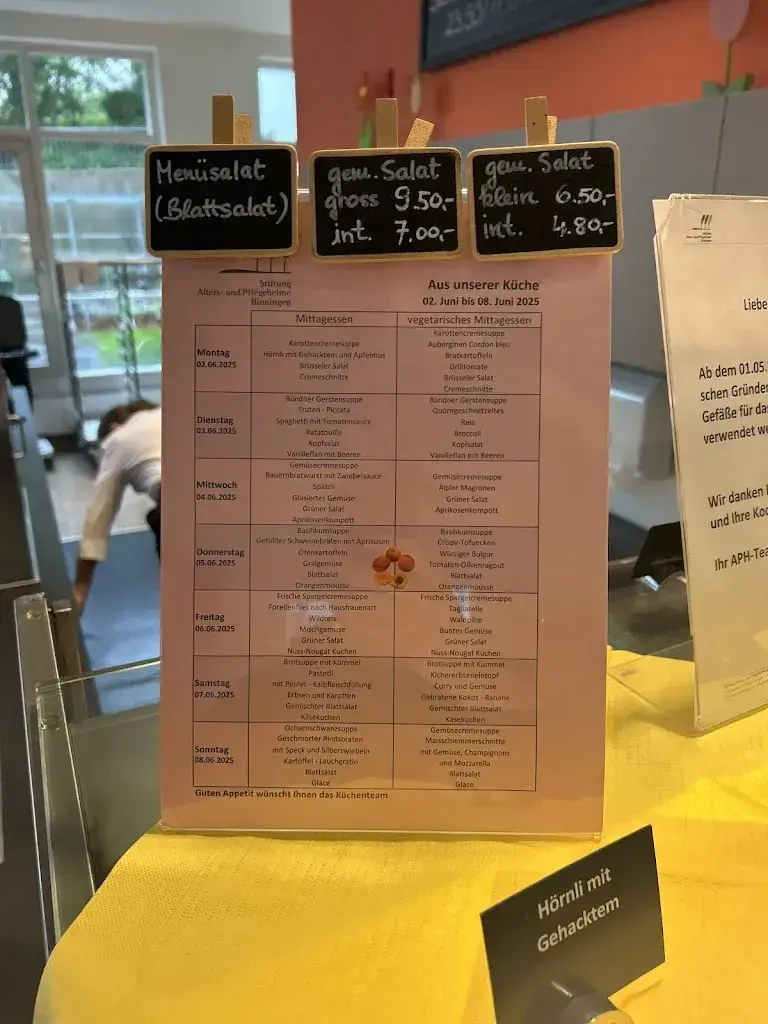 Menüsalat
(Blattsalat)
gem. Salat
gross 9.50,-
int. 7.00,-
gem. Salat
klein 6.50,-
int. 4.80,-
Stiftung
Alters- und Pflegeheime
Binningen
Aus unserer Küche
02. Juni bis 08. Juni 2025
Mittagessen
vegetarisches Mittagessen
Montag
02.06.2025
Karottencremesuppe
Hörnli mit Gehacktem und Apfelmus
Brüsseler Salat
Cremeschnitte
Karottencremesuppe
Auberginen Cordon bleu
Bratkartoffeln
Grilltomate
Brüsseler Salat
Cremeschnitte
Dienstag
03.06.2025
Bündner Gerstensuppe
Truten - Piccata
Spaghetti mit Tomatensauce
Ratatouille
Kopfsalat
Vanilleflan mit Beeren
Bündner Gerstensuppe
Quorngeschnetzeltes
Reis
Broccoli
Kopfsalat
Vanilleflan mit Beeren
Mittwoch
04.06.2025
Gemüsecremesuppe
Bauernbratwurst mit Zwiebelsauce
Spätzli
Glasiertes Gemüse
Grüner Salat
Aprikosenkompott
Gemüsecremesuppe
Älpler Magronen
Grüner Salat
Aprikosenkompott
Donnerstag
05.06.2025
Basilikumsuppe
Gefüllter Schweinebraten mit Aprikosen
Ofenkartoffeln
Grillgemüse
Blattsalat
Orangenmousse
Basilikumsuppe
Crispy-Tofuecken
Würziger Bulgur
Tomaten-Olivenragout
Blattsalat
Orangenmousse
Freitag
06.06.2025
Frische Spargelcremesuppe
Forellenfilet nach Hausfrauenart
Wildreis
Mischgemüse
Grüner Salat
Nuss-Nougat Kuchen
Frische Spargelcremesuppe
Tagliatelle
Waldpilze
Buntes Gemüse
Grüner Salat
Nuss-Nougat Kuchen
Samstag
07.06.2025
Brotsuppe mit Kümmel
Pastetli
mit Poulet - Kalbfleischfüllung
Erbsen und Karotten
Gemischter Blattsalat
Käsekuchen
Brotsuppe mit Kümmel
Kichererbseneintopf
Curry und Gemüse
Gebratene Kokos - Banane
Gemischter Blattsalat
Käsekuchen
Sonntag
08.06.2025
Ochsenschwanzsuppe
Geschmorter Rindsbraten
mit Speck und Silberzwiebeln
Kartoffel - Lauchgratin
Blattsalat
Glace
Gemüsecremesuppe
Maisschlemmerschnitte
mit Gemüse, Champignons
und Mozzarella
Blattsalat
Glace
Guten Appetit wünscht Ihnen das Küchenteam
Liebe
Ab dem 01.05.
schen Gründen
Gefäße für das
verwendet we
Wir danken
und Ihre Koo
Ihr APH-Tea
Hörnli mit
Gehacktem